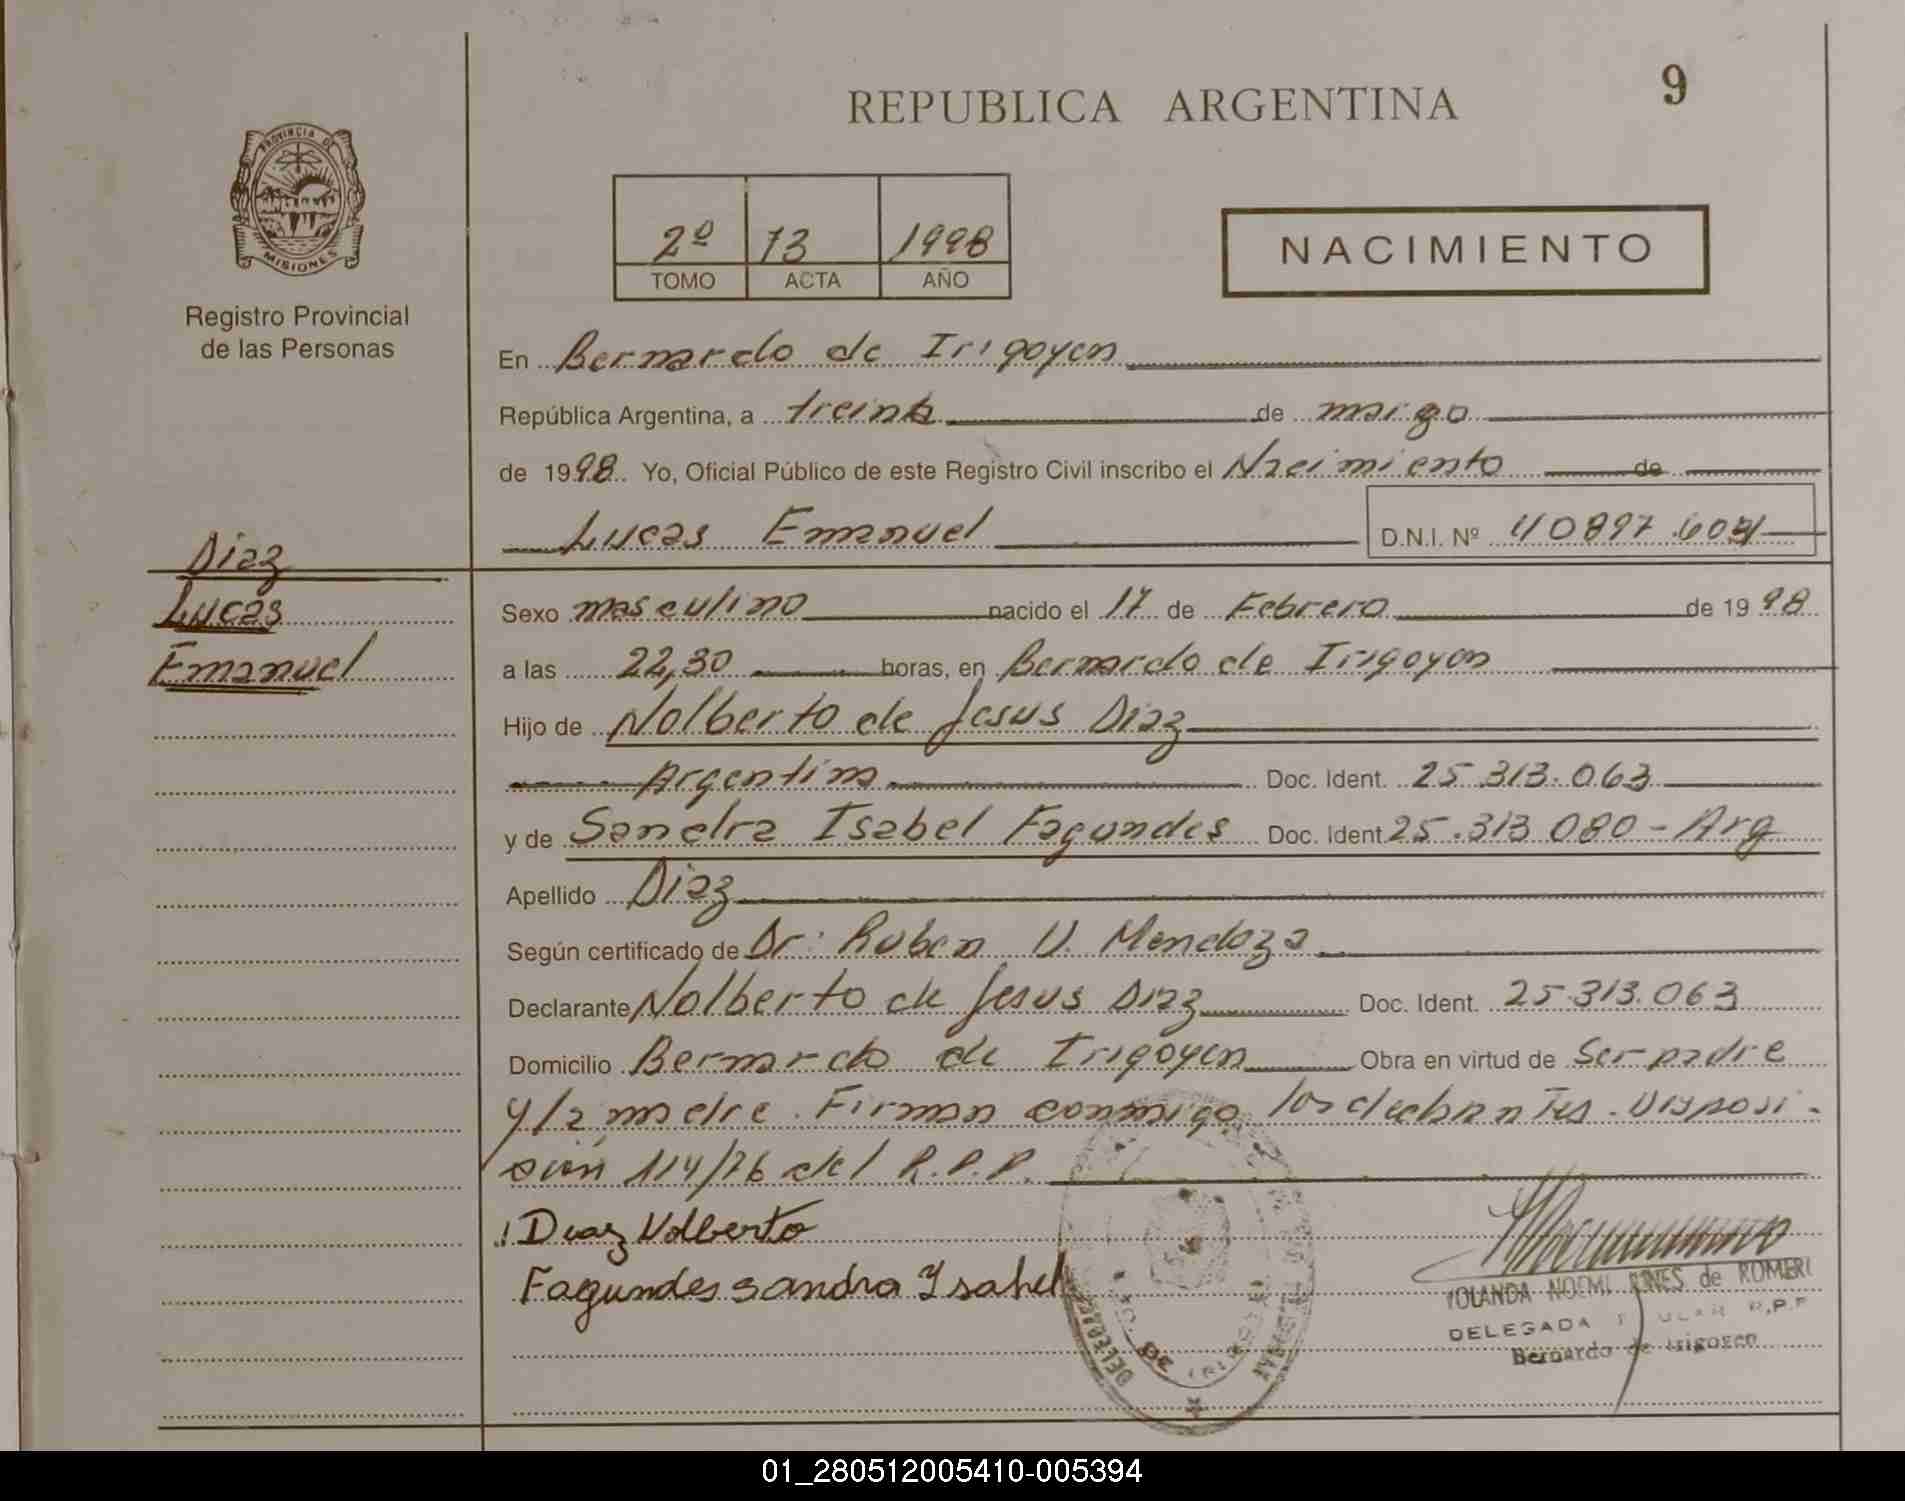 REPUBLICA ARGENTINA
9
PROVINCIA DE
MISIONES
Registro Provincial
de las Personas
2º 13 1998
TOMO ACTA AÑO
NACIMIENTO
En Bernardo de Irigoyen
República Argentina, a treinta de marzo
de 1998 Yo, Oficial Público de este Registro Civil inscribo el Nacimiento de
Lucas Emanuel D.N.I. Nº 40897.
Diaz
Lucas
Emanuel
Sexo masculino nacido el 17 de Febrero de 1998
a las 22,30 horas, en Bernardo de Irigoyen
Hijo de Nolberto de Jesus Diaz
Argentina Doc. Ident. 25.313.063
y de Sandra Isabel Fagundes Doc. Ident. 25.313.080 - Arg
Apellido Diaz
Según certificado de Dr: Ruben Mendoza
Declarante Nolberto de Jesus Diaz Doc. Ident. 25.313.063
Domicilio Bernardo de Irigoyen Obra en virtud de Ser padre
y la madre. Firman conmigo los declarantes. Disposi-
cion 114/76 del R.P.P.
Diaz Nolberto
Fagundes Sandra Ysabel
YOLANDA NOEMI de ROMERO
DELEGADA R.P.P
Bernardo de Irigoyen
01_280512005410-005394